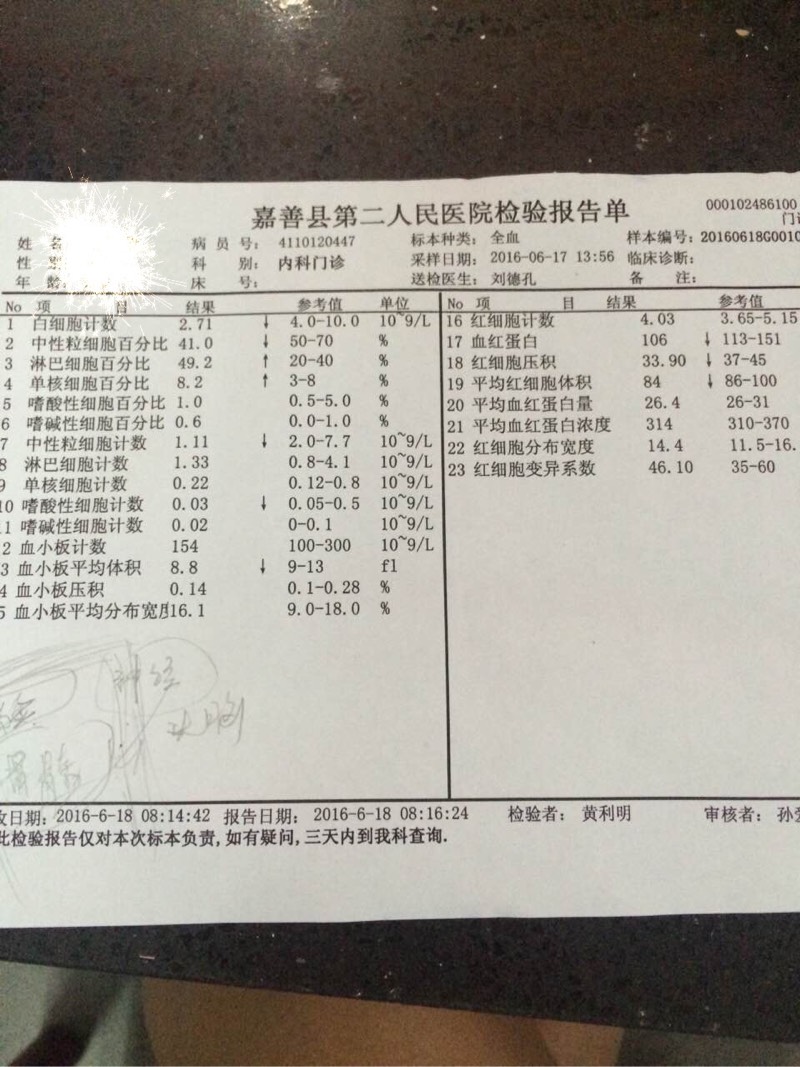 嘉善县第二人民医院检验报告单 000102486100
姓名 病员号: 4110120447 标本种类: 全血 样本编号: 20160618G0010
性别 科别: 内科门诊 采样日期: 2016-06-17 13:56 临床诊断:
年龄: 床号: 送检医生: 刘德孔 备注:
No 项目 结果 参考值 单位 No 项目 结果 参考值
1 白细胞计数 2.71 ↓ 4.0-10.0 10~9/L 16 红细胞计数 4.03 3.65-5.15
2 中性粒细胞百分比 41.0 ↓ 50-70 % 17 血红蛋白 106 ↓ 113-151
3 淋巴细胞百分比 49.2 ↑ 20-40 % 18 红细胞压积 33.90 ↓ 37-45
4 单核细胞百分比 8.2 ↑ 3-8 % 19 平均红细胞体积 84 ↓ 86-100
5 嗜酸性细胞百分比 1.0 0.5-5.0 % 20 平均血红蛋白量 26.4 26-31
6 嗜碱性细胞百分比 0.6 0.0-1.0 % 21 平均血红蛋白浓度 314 310-370
7 中性粒细胞计数 1.11 ↓ 2.0-7.7 10~9/L 22 红细胞分布宽度 14.4 11.5-16.
8 淋巴细胞计数 1.33 0.8-4.1 10~9/L 23 红细胞变异系数 46.10 35-60
9 单核细胞计数 0.22 0.12-0.8 10~9/L
10 嗜酸性细胞计数 0.03 ↓ 0.05-0.5 10~9/L
1 嗜碱性细胞计数 0.02 0-0.1 10~9/L
2 血小板计数 154 100-300 10~9/L
3 血小板平均体积 8.8 ↓ 9-13 fl
4 血小板压积 0.14 0.1-0.28 %
5 血小板平均分布宽度 16.1 9.0-18.0 %
神经
日期: 2016-6-18 08:14:42 报告日期: 2016-6-18 08:16:24 检验者: 黄利明 审核者: 孙
此检验报告仅对本次标本负责,如有疑问,三天内到我科查询.